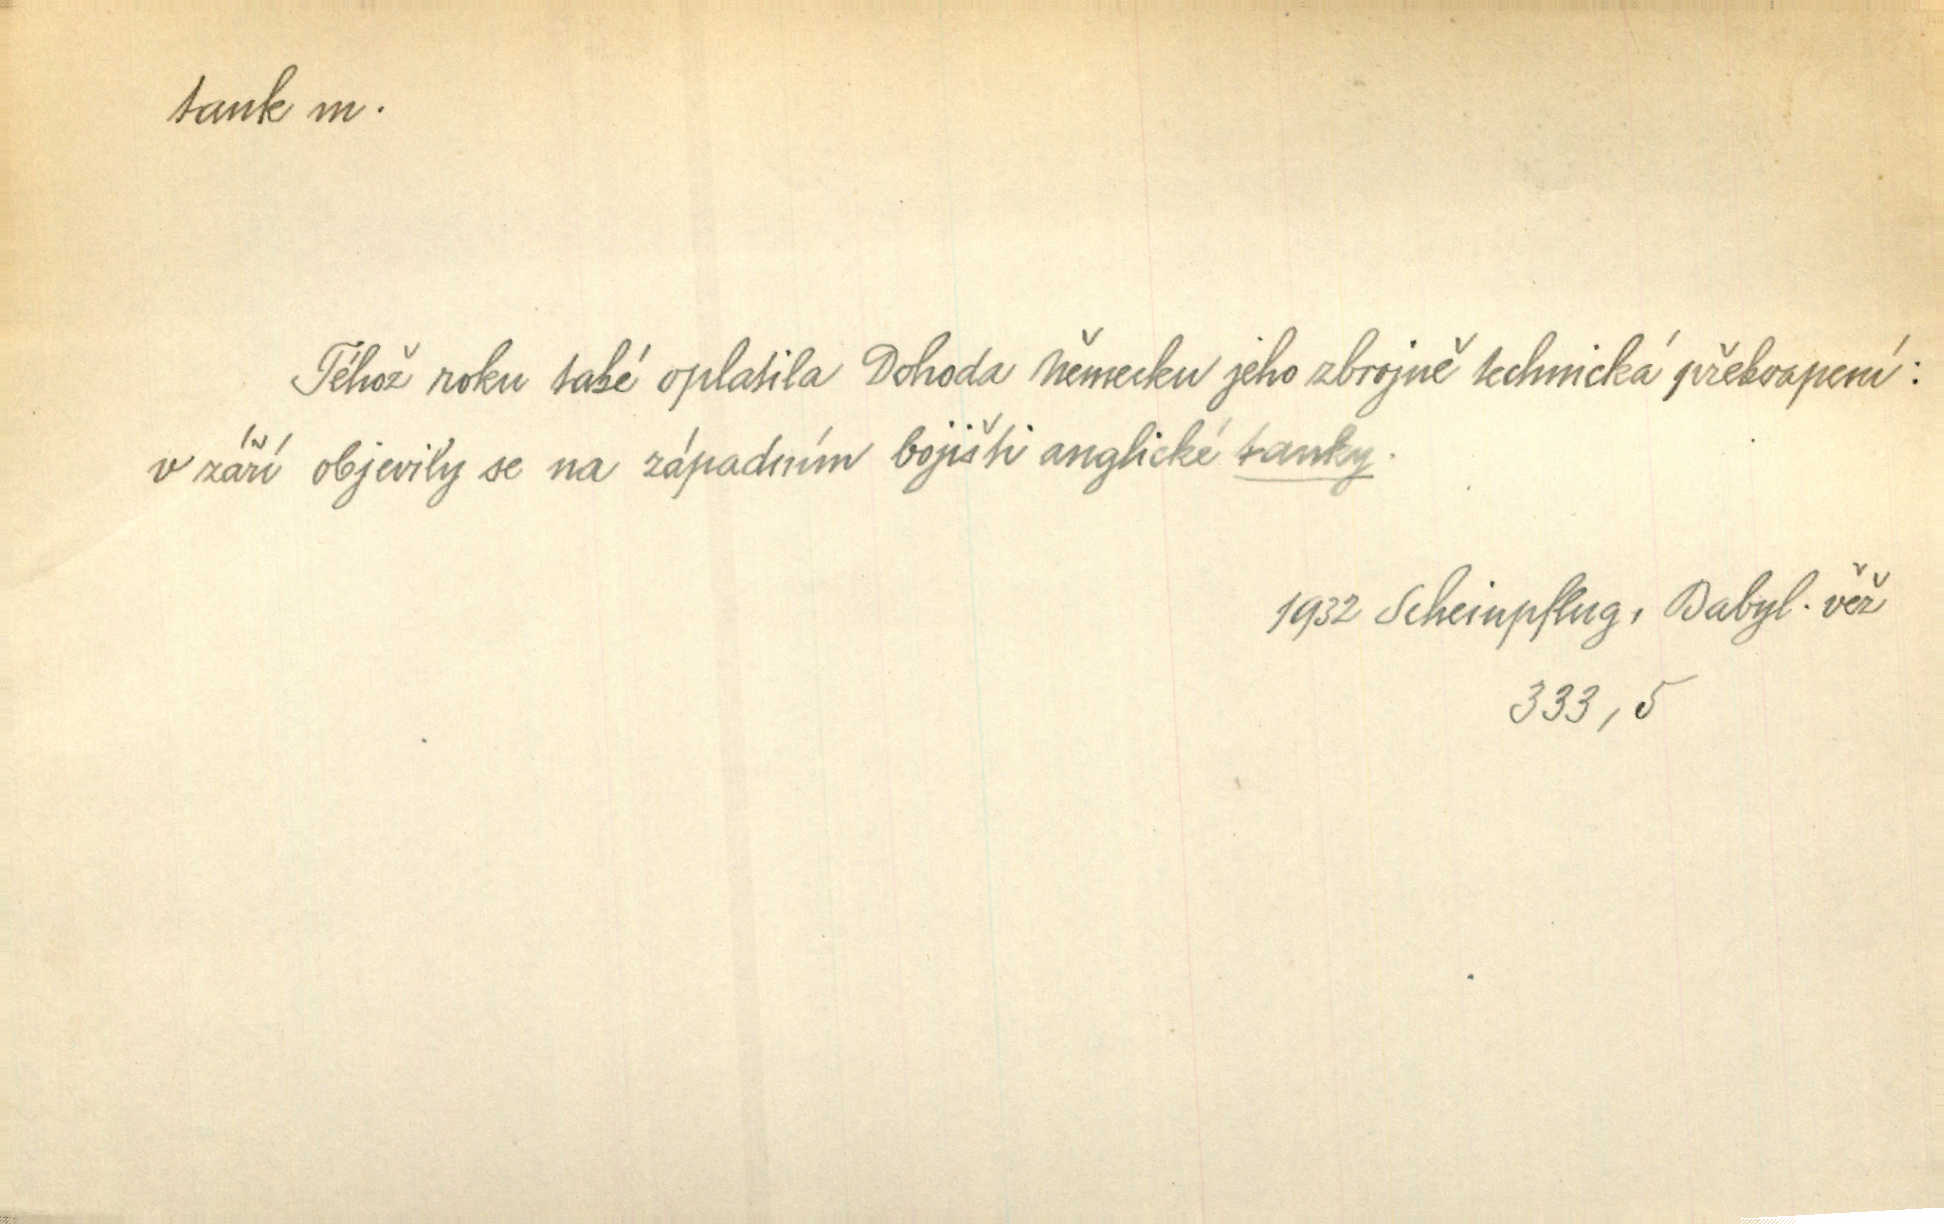 tank m.
Téhož roku také oplatila Dohoda Německu jeho zbrojně technická překvapení:
v září objevily se na západním bojišti anglické tanky.
1932 Scheinpflug, Babyl. věž
333, 5